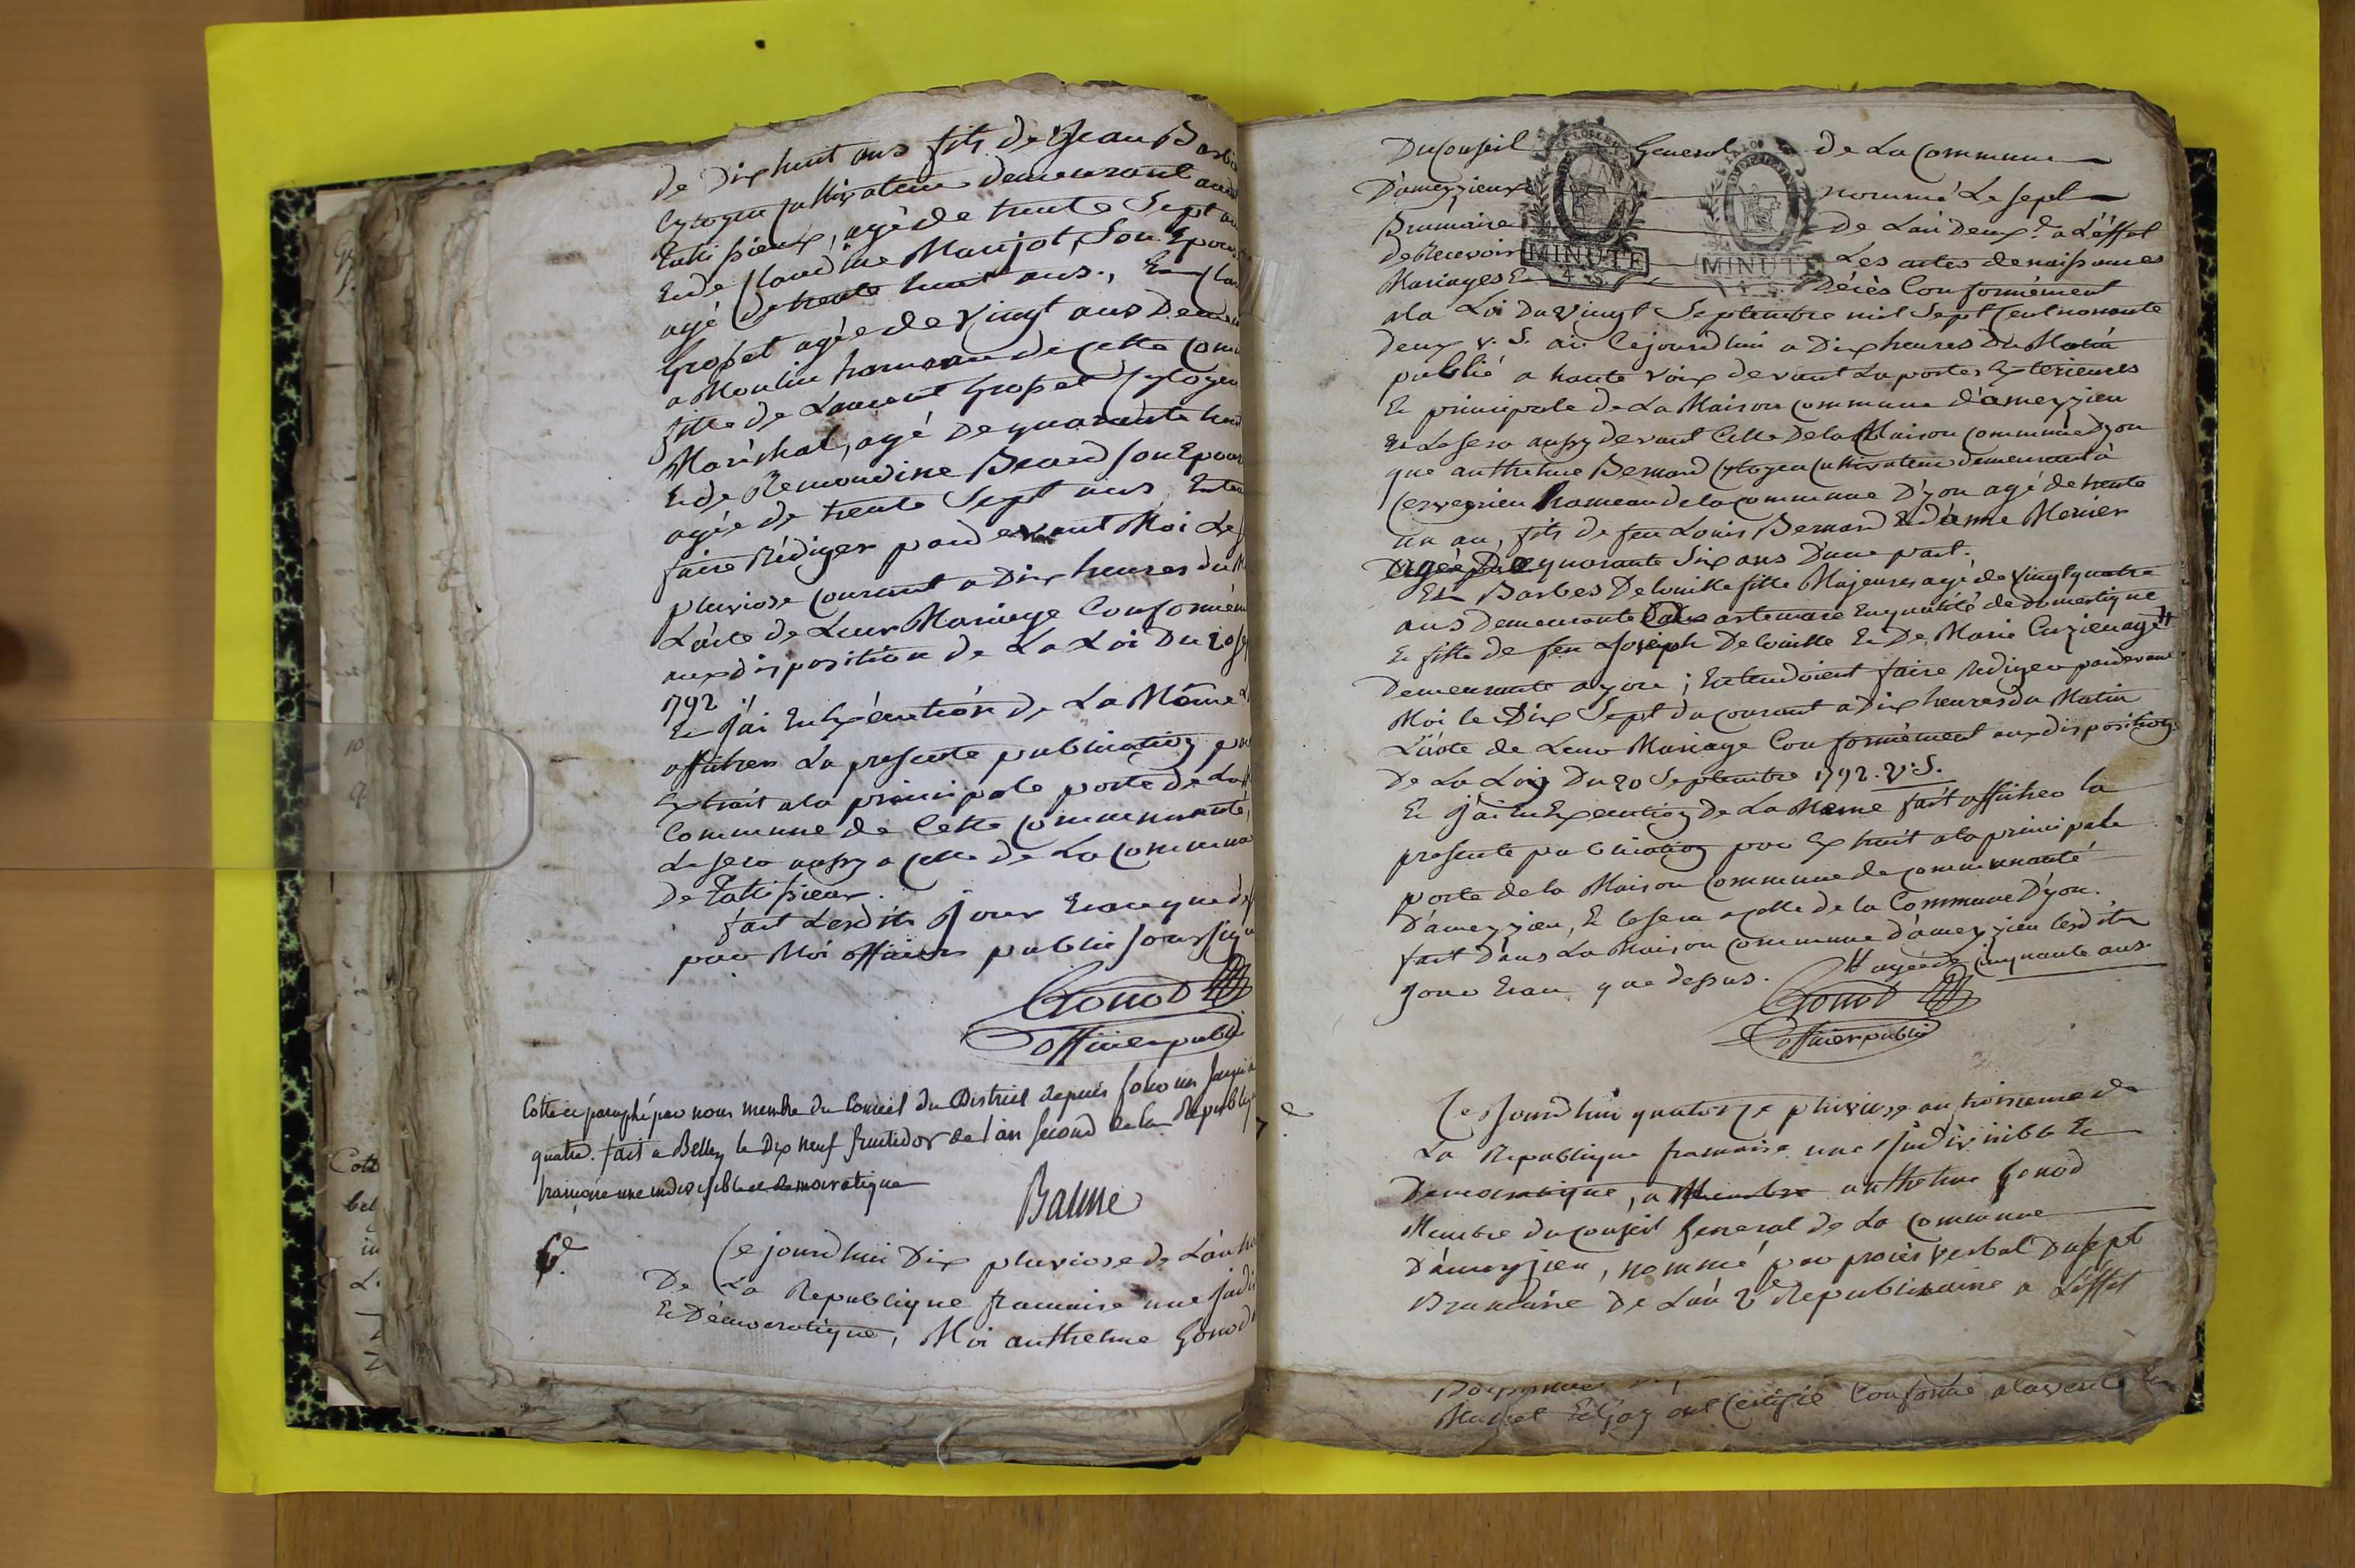 de Dix huit ans fils de Jean Barbi
Cytoyen Cultivateur demeurant aud
Talissieux, agé de trente Sept an
Et de Claudine Maujot, Son Epous
agé de trente huit ans., Et Clau
Grosset agée de vingt ans Demeu
a Moulin hameau de Cette Com
fille de Laurent Grosset Cytoyen
Maréchal, agé de quarante huit
Et de Remondine Beard Son Epous
agée de trente Sept ans, Enten
faire Rédiger pardevant Moi Le
pluviose Courant a Dix heures du M
L'acte de Leur Mariage Conformém
aux disposition de La Loi Du 20 Se
1792.
Et J'ai En Exécution de La Même
afficher La presente publication pa
Extrait a la principale porte de La
Commune de Cette Communauté,
Le sera aussy a Celle de La Commune
De Talissieux.
fait Lesdits Jour Et an que de
par Moi officier public Soussigné
Gonod
officier public
Cotté et paraphé par nous membre du Conseil du District depuis folio un jusqu'a
quatre. fait a Belley le Dix neuf fructidor de l'an second de la Republiq
francaise une indivisible et democratique
Baume
6e
Ce jourd'hui Dix pluviose de L'an tr
De La Republique francaise une Indi
Et Démocratique, Moi anthelme Gonod
Du Conseil General de La Commune
D'ameyzieux nommé Le sept
Brumaire De L'an Deux.e a L'éffet
de Recevoir Les actes de naissances
Mariages Et Décès Conformément
a la Loi Du Vingt Septembre mil Sept Cent nonante
deux v. S. ai Cejourd'hui a Dix heures Du Matin
publié a haute Voix devant La portes Exterieures
Et principale de La Maison Commune d'ameyzieu
Et Le sera aussy devant Celle De la Maison Commune D'yon
que anthelme Bernard Cytoyen Cultivateur demeurant à
Cerveyrieu hameau de la commune D'yon agé de trente
un an, fils de feu Louis Bernard Et d'anne Merier
agée De quarante Six ans D'une part.
Et Barbes Delouille fille Majeures agé de Vingt quatre
ans Demeurante a artemare En qualité de domestique
Et fille de feu Joseph Delouille Et De Marie Cuzien agé #
Demeurante a yon; Entendoient faire Rediger pardevant
Moi le Dix Sept du courant a Dix heures du Matin
L'acte de Leur Mariage Conformément aux dispositions
De La Loy Du 20 Septembre 1792. V. S.
Et J'ai En Execution de La Meme fait afficher la
presente publication par Extrait a la principale
porte de la Maison Commune de communauté
D'ameyzieu, Et le sera a Celle de la Commune D'yon.
fait Dans La Maison Commune d'ameyzieu lesdits
Jour Et an que dessus. # agée de Cinquante ans
Gonod
officier public
Ce Jourd'hui quatorze pluviose an troisieme de
La Republique francaise une Indivisible Et
Democratique, a Membre anthelme Gonod
Membre du Conseil General de La Commune
D'ameyzieu, nommé par procès verbal Du sept
Brumaire De L'an 2e Republicaine a L'éffet
ont Certifié Conforme a la verité
MINUTE
4 S
MINUTE